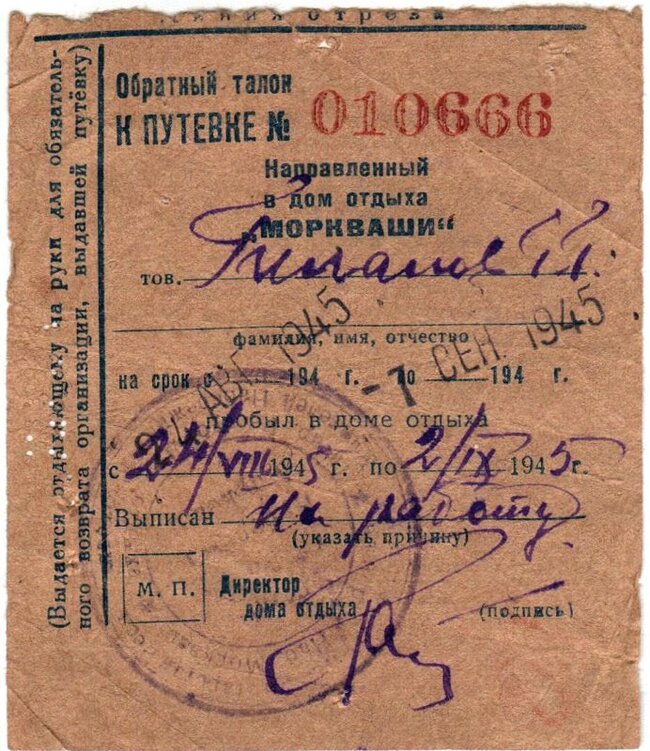 линия отреза
Обратный талон
К ПУТЕВКЕ № 010666
Направленный
в дом отдыха
„МОРКВАШИ“
тов.
фамилия, имя, отчество
на срок с 194 г. по 194 г.
24 АВГ 1945 - 7 СЕН 1945
пробыл в доме отдыха
с 24/VIII 1945 г. по 2/IX 1945 г.
Выписан на работу
(указать причину)
М. П. Директор
дома отдыха (подпись)
(Выдается отдыхающему на руки для обязатель-
ного возврата организации, выдавшей путёвку)